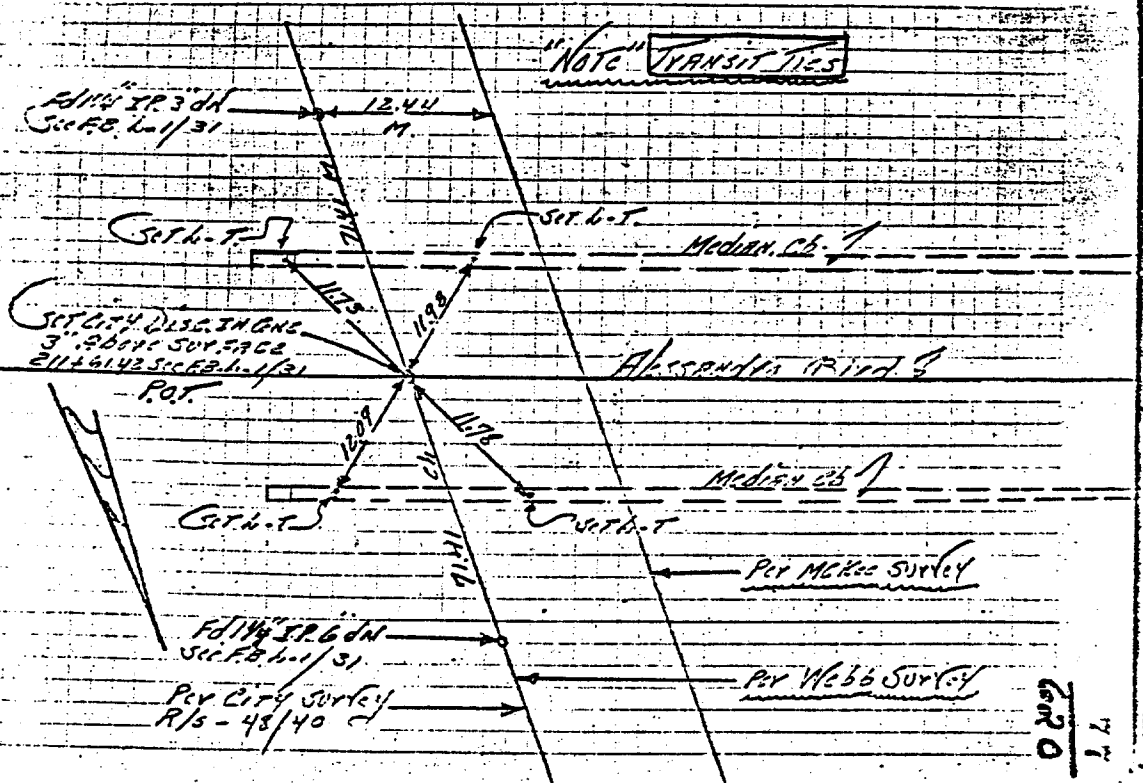 "NOTE" TRANSIT TIES
Fd 1¼" I.P. 3" dn
See F.B. L-1/31
12.44
M
71.41 M
Set L-T
Set L-T
Median Cb.
11.75
11.98
Set City Disc. In Conc
3" Above Surface
211+61.42 See F.B. L-1/31
P.O.T.
Alessandro Blvd.
12.09
11.76
Ch
Median Cb
Set L-T
Set L-T
71.41
Per McKee Survey
Fd 1¼" I.P. 6" dn
See F.B. L-1/31
Per Webb Survey
Per City Survey
R/S - 48/40